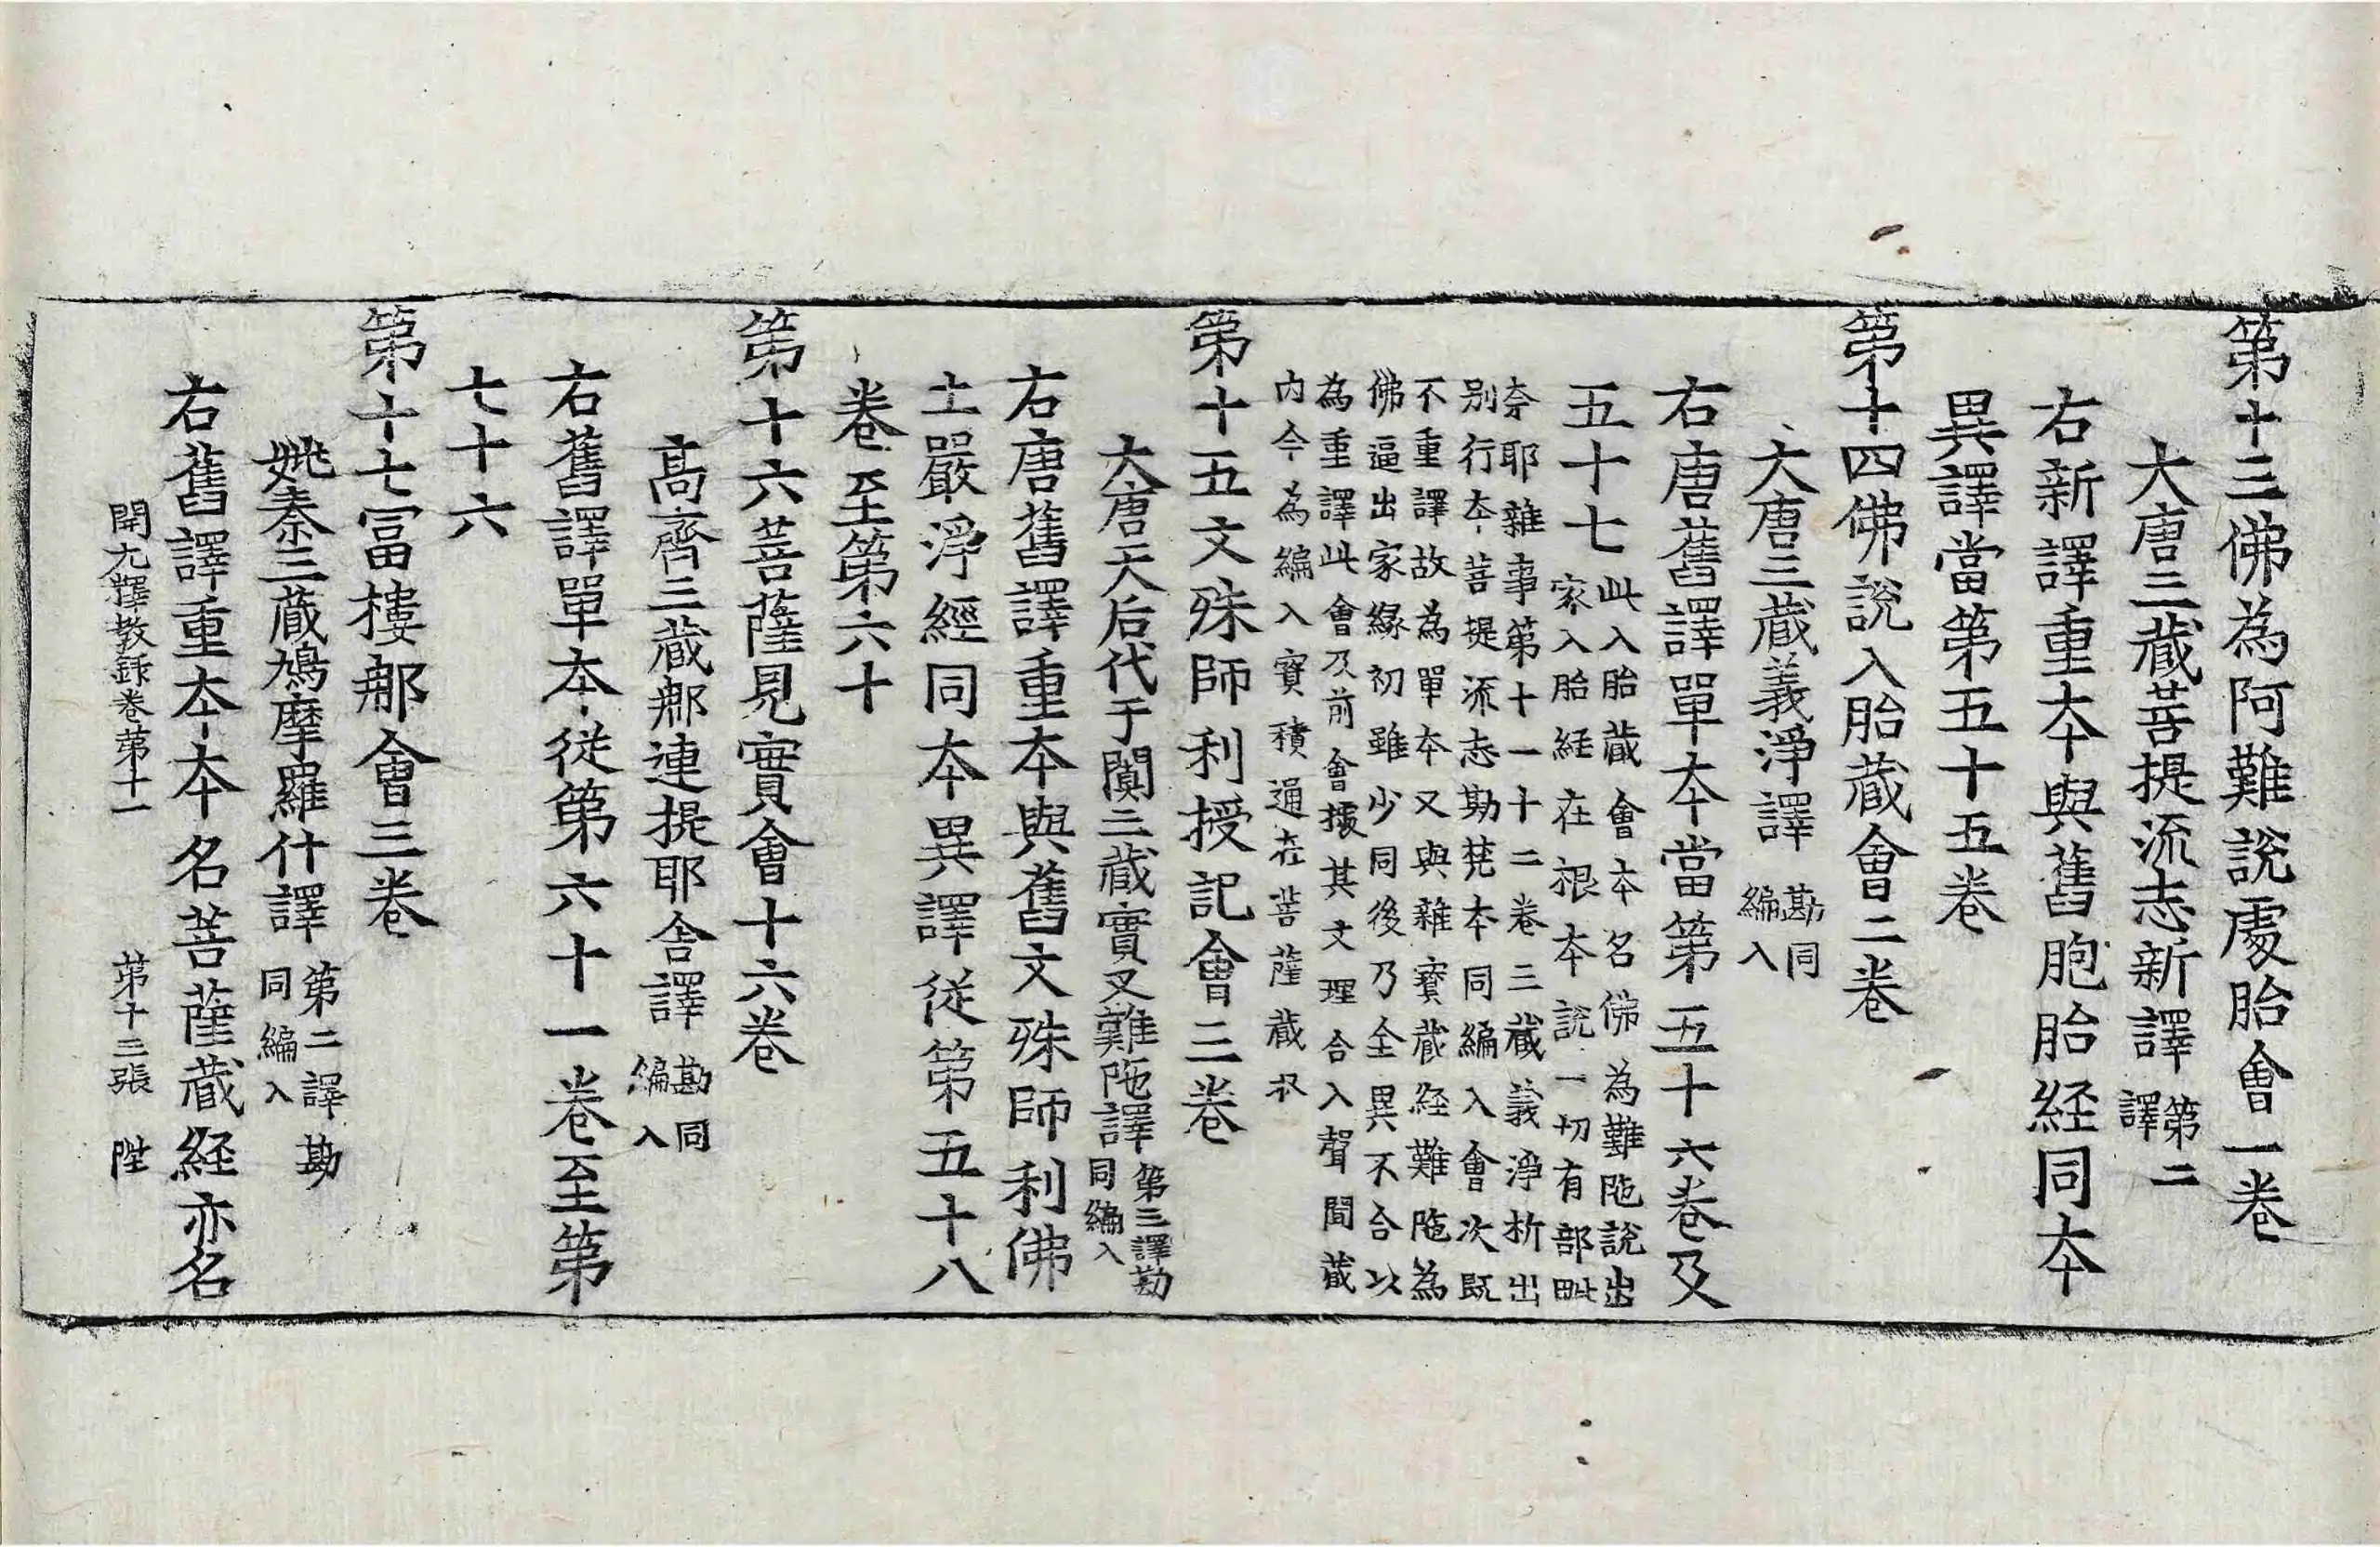 第十三佛為阿難說處胎會一卷
大唐三藏菩提流志新譯第二
譯
右新譯重本與舊胞胎經同本
異譯當第五十五卷
第十四佛說入胎藏會二卷
大唐三藏義淨譯勘同
編入
右唐舊譯單本當第五十六卷及
五十七此入胎藏會本名佛為難陁說出
家入胎経在根本說一切有部毗
奈耶雜事第十一十二卷三藏義淨析出
別行本菩提流志勘梵本同編入會次既
不重譯故為單本又與雜寶藏経難陁為
佛逼出家緣初雖少同後乃全異不合以
為重譯此會及前會據其文理合入聲聞藏
内今為編入寶積通在菩薩藏収
第十五文殊師利授記會三卷
大唐天后代于闐三藏實叉難陁譯第三譯勘
同編入
右唐舊譯重本與舊文殊師利佛
土嚴淨經同本異譯從第五十八
卷至第六十
第十六菩薩見實會十六卷
高齊三藏那連提耶舍譯勘同
編入
右舊譯單本從第六十一卷至第
七十六
第十七冨樓那會三卷
姚秦三藏鳩摩羅什譯第二譯勘
同編入
右舊譯重本本名菩薩藏経亦名
開元釋教錄卷第十一 第十三張 陞